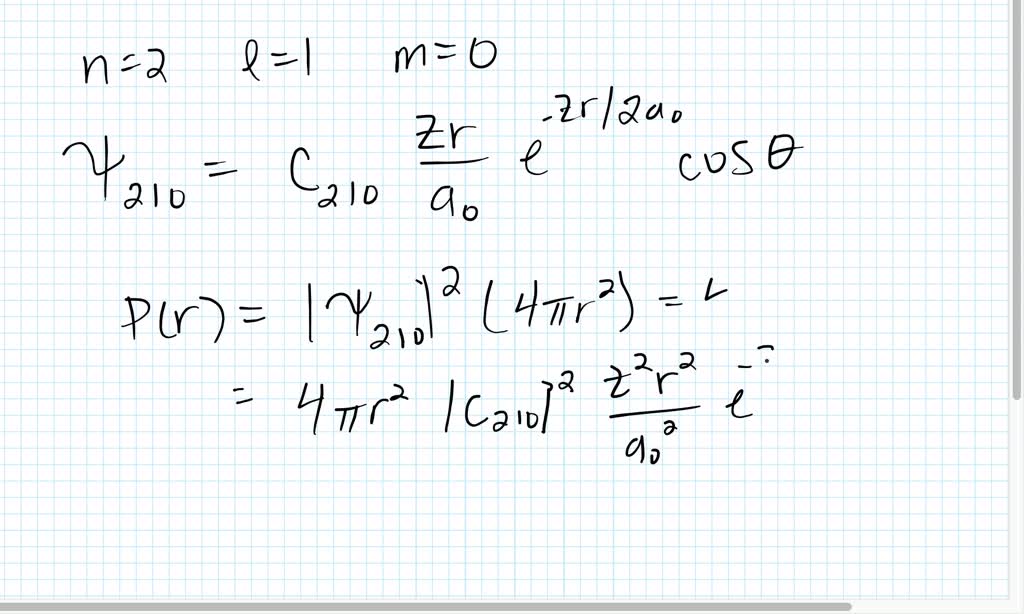 n=2 l=1 m=0
Ψ₂₁₀ = C₂₁₀ Zr/a₀ e^(-Zr/2a₀) cosθ
P(r) = |Ψ₂₁₀|² (4πr²) =
= 4πr² |C₂₁₀|² Z²r²/a₀² e^-